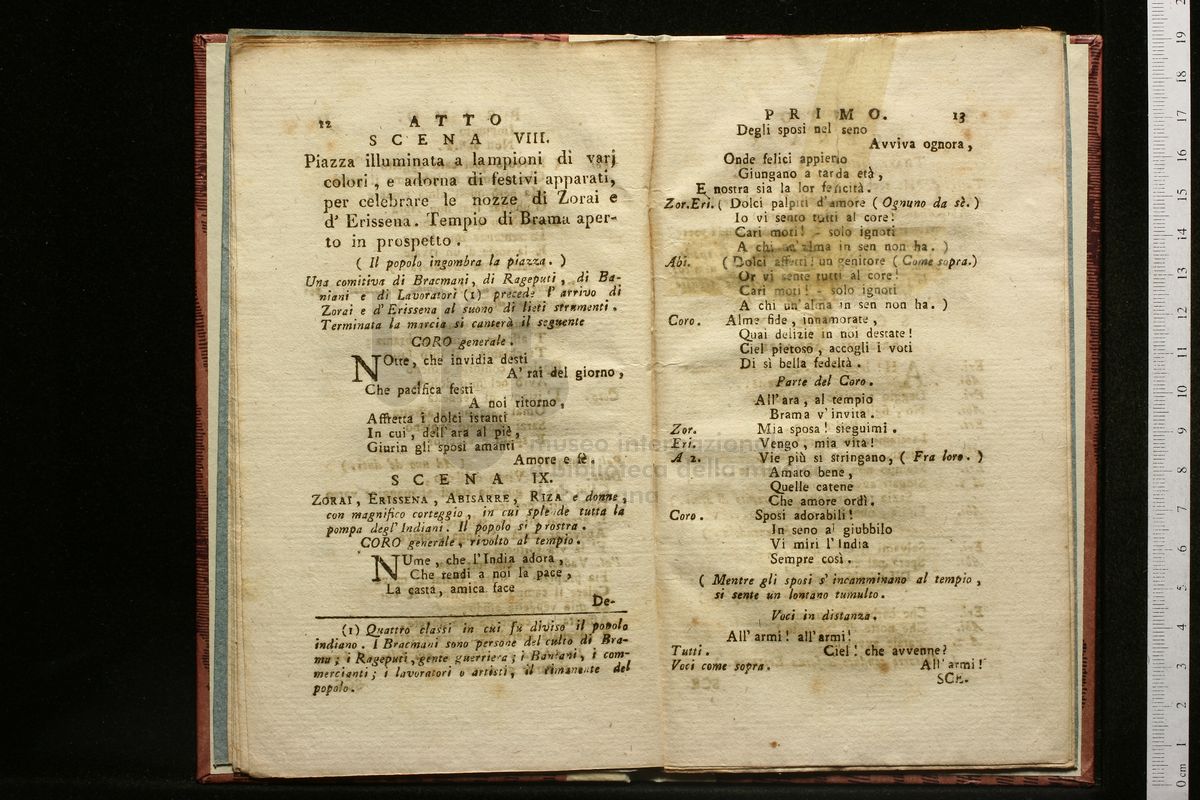 12 ATTO
SCENA VIII.
Piazza illuminata a lampioni di varj
colori, e adorna di festivi apparati,
per celebrare le nozze di Zorai e
d' Erissena. Tempio di Brama aper-
to in prospetto.
( Il popolo ingombra la piazza. )
Una comitiva di Bracmani, di Rageputi, di Ba-
niani e di Lavoratori (1) precede l' arrivo di
Zorai e d' Erissena al suono di lieti strumenti.
Terminata la marcia si canterà il seguente
CORO generale.
NOtte, che invidia desti
A' rai del giorno,
Che pacifica festi
A noi ritorno,
Affretta i dolci istanti
In cui, dell' ara al piè,
Giurin gli sposi amanti
Amore e fè.
SCENA IX.
ZORAI, ERISSENA, ABISARRE, RIZA e donne,
con magnifico corteggio, in cui splende tutta la
pompa degl' Indiani. Il popolo si prostra.
CORO generale, rivolto al tempio.
NUme, che l' India adora,
Che rendi a noi la pace,
La casta, amica face
De-
(1) Quattro classi in cui fu diviso il popolo
indiano. I Bracmani sono persone del culto di Bra-
ma; i Rageputi, gente guerriera; i Baniani, i com-
mercianti; i lavoratori o artisti, il rimanente del
popolo.
PRIMO. 13
Degli sposi nel seno
Avviva ognora,
Onde felici appieno
Giungano a tarda età,
E nostra sia la lor felicità.
Zor.Eri. ( Dolci palpiti d' amore ( Ognuno da sè. )
Io vi sento tutti al core!
Cari moti! - solo ignoti
A chi un' alma in sen non ha. )
Abi. ( Dolci affetti! un genitore ( Come sopra.)
Or vi sente tutti al core!
Cari moti! - solo ignoti
A chi un' alma in sen non ha. )
Coro. Alme fide, innamorate,
Quai delizie in noi destate!
Ciel pietoso, accogli i voti
Di sì bella fedeltà.
Parte del Coro.
All' ara, al tempio
Brama v' invita.
Zor. Mia sposa! sieguimi.
Eri. Vengo, mia vita!
A 2. Vie più si stringano, ( Fra loro. )
Amato bene,
Quelle catene
Che amore ordì.
Coro. Sposi adorabili!
In seno al giubbilo
Vi miri l' India
Sempre così.
( Mentre gli sposi s' incamminano al tempio,
si sente un lontano tumulto.
Voci in distanza.
All' armi! all' armi!
Tutti. Ciel! che avvenne?
Voci come sopra. All' armi!
SCE-